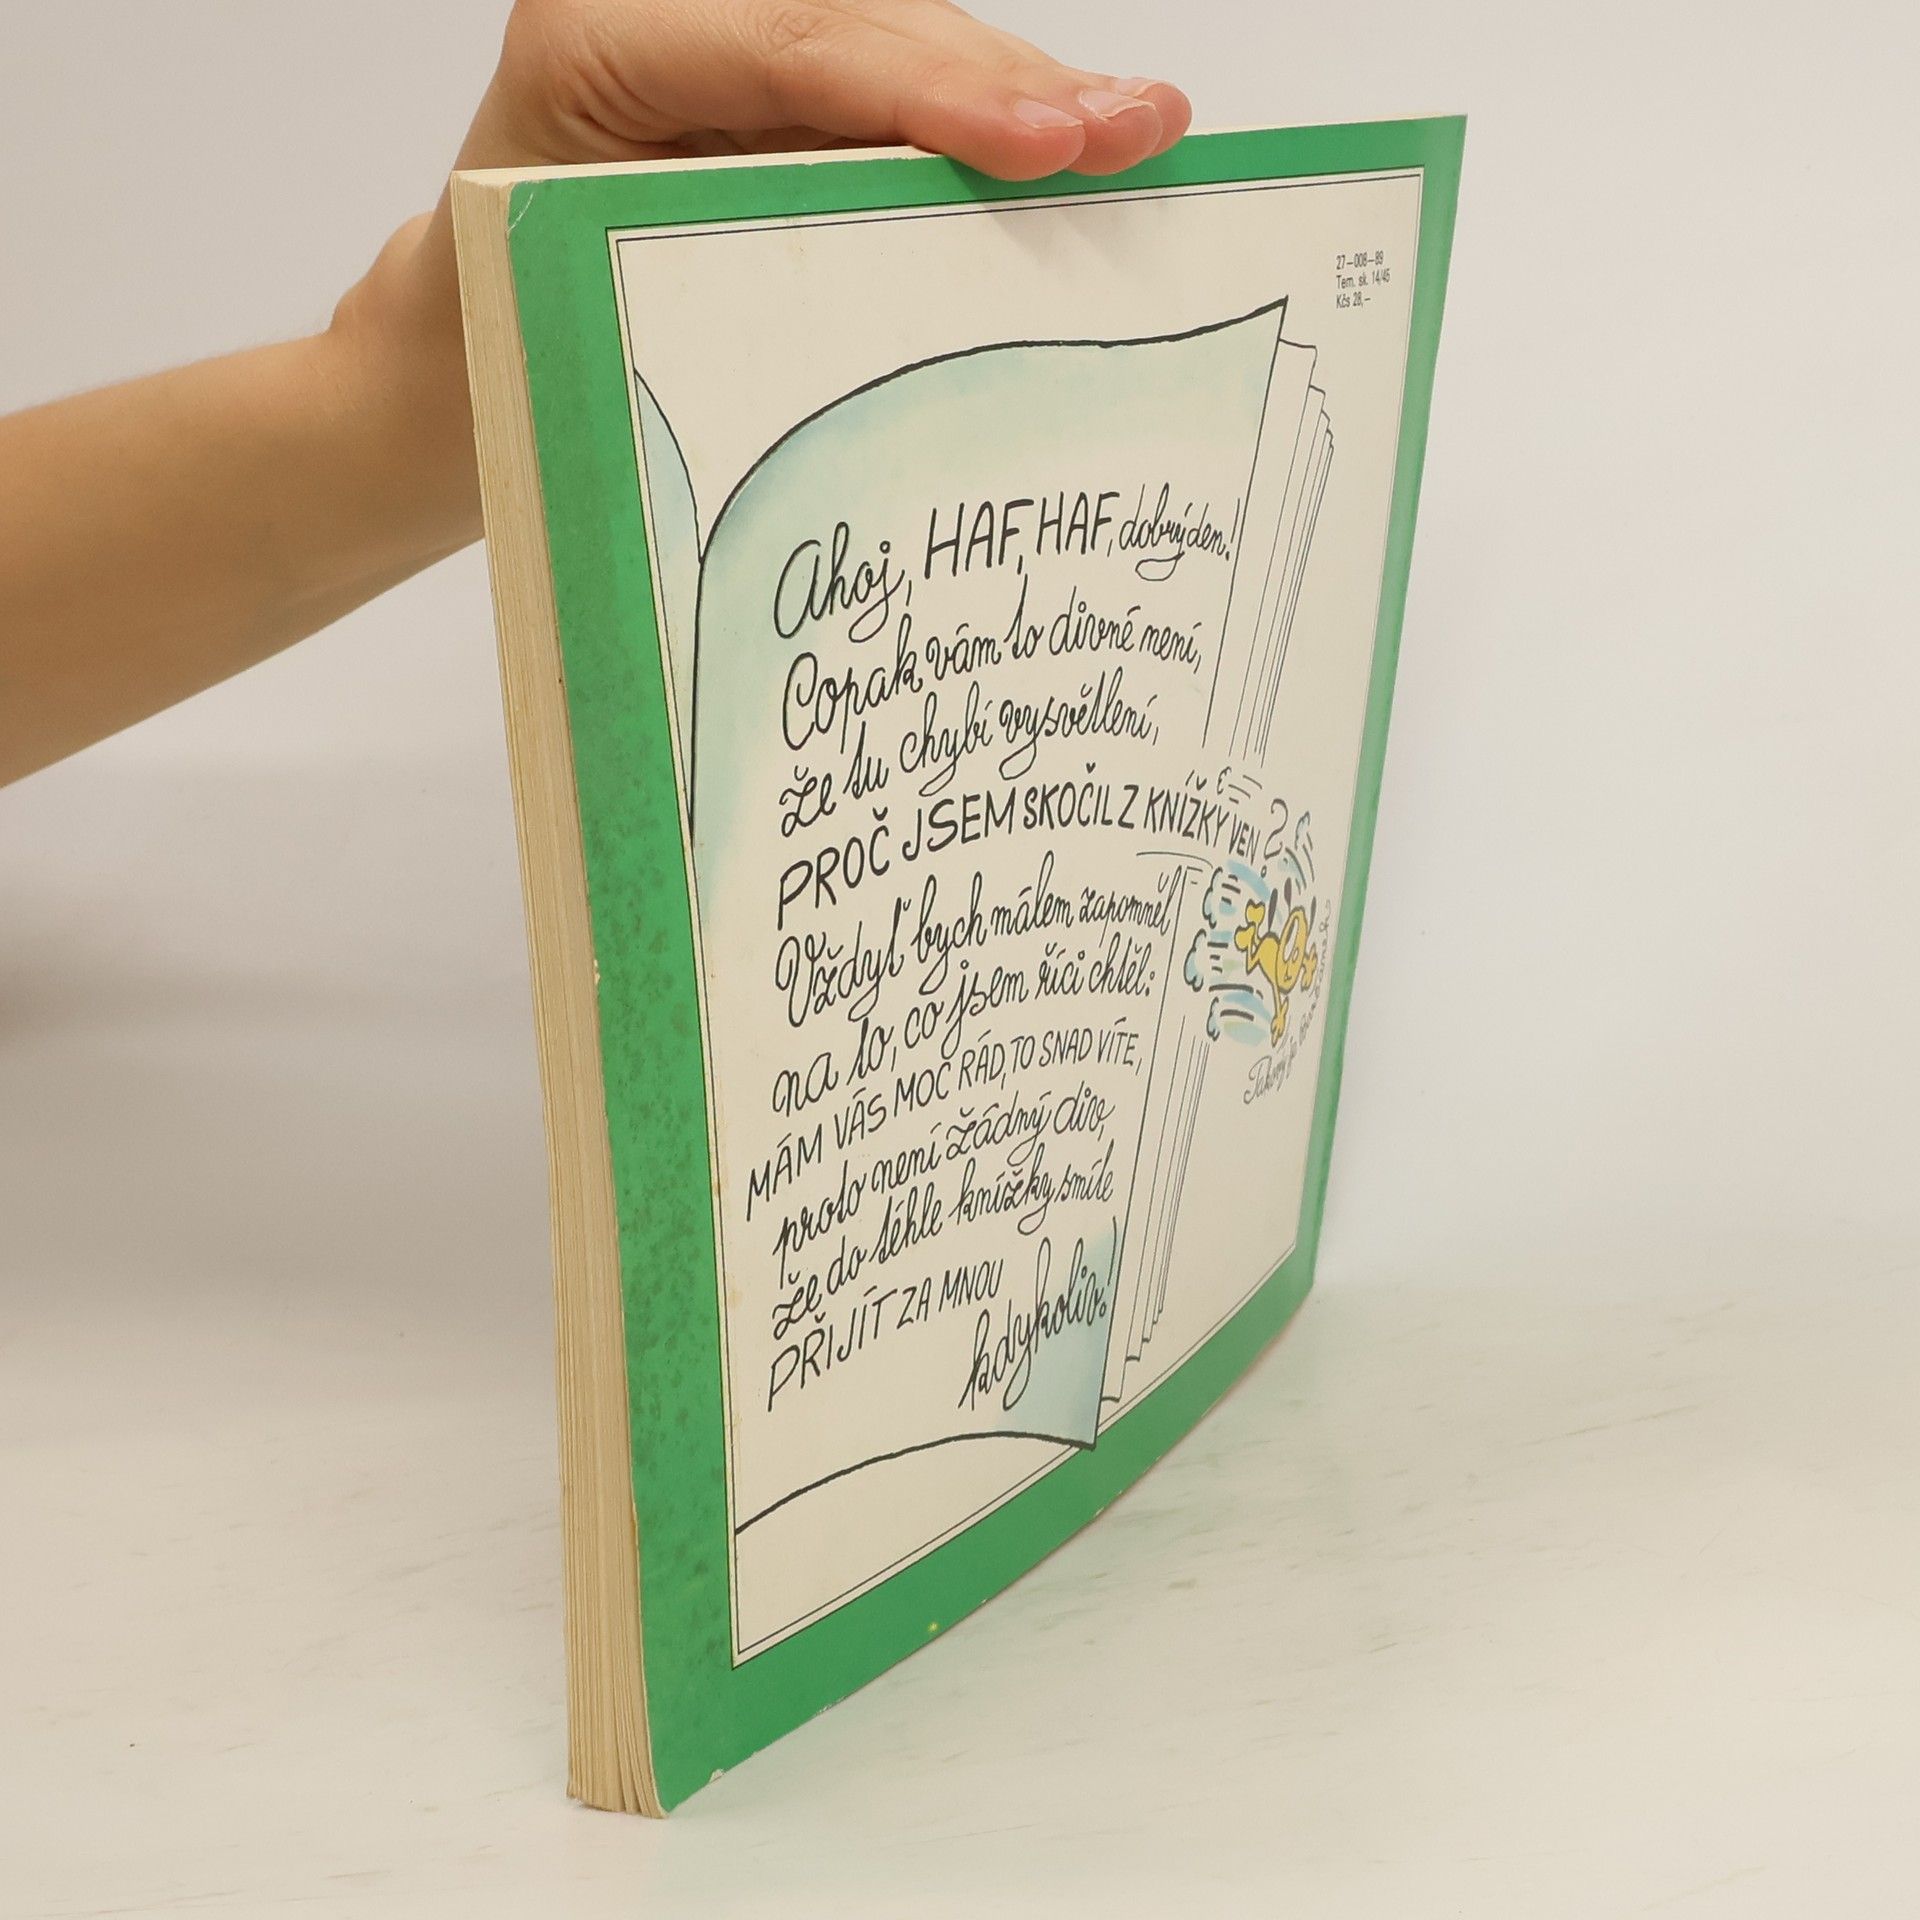 27—008—89
Tem. sk. 14/45
Kčs 28,—
Ahoj, HAF, HAF, dobrý den!
Copak vám to divné není,
že tu chybí vysvětlení,
PROČ JSEM SKOČIL Z KNÍŽKY VEN?
Vždyť bych málem zapomněl
na to, co jsem říci chtěl:
MÁM VÁS MOC RÁD, TO SNAD VÍTE,
proto není žádný div,
že do téhle knížky smíte
PŘIJÍT ZA MNOU
kdykoliv!